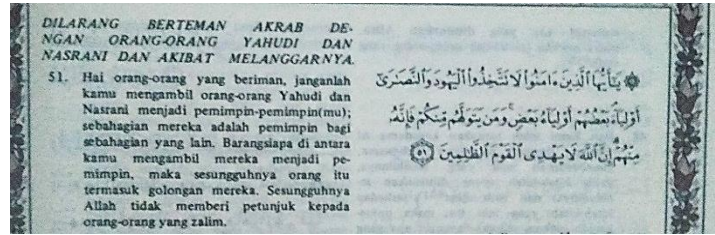 DILARANG BERTEMAN AKRAB DE-
NGAN ORANG-ORANG YAHUDI DAN
NASRANI DAN AKIBAT MELANGGARNYA.
51. Hai orang-orang yang beriman, janganlah
kamu mengambil orang-orang Yahudi dan
Nasrani menjadi pemimpin-pemimpin(mu);
sebahagian mereka adalah pemimpin bagi
sebahagian yang lain. Barangsiapa di antara
kamu mengambil mereka menjadi pe-
mimpin, maka sesungguhnya orang itu
termasuk golongan mereka. Sesungguhnya
Allah tidak memberi petunjuk kepada
orang-orang yang zalim.
۞ يَٰٓأَيُّهَا ٱلَّذِينَ ءَامَنُوا۟ لَا تَتَّخِذُوا۟ ٱلْيَهُودَ وَٱلنَّصَٰرَىٰٓ
أَوْلِيَآءَ بَعْضُهُمْ أَوْلِيَآءُ بَعْضٍ ۚ وَمَن يَتَوَلَّهُم مِّنكُمْ فَإِنَّهُۥ
مِنْهُمْ إِنَّ ٱللَّهَ لَا يَهْدِى ٱلْقَوْمَ ٱلظَّٰلِمِينَ ﴿٥١﴾